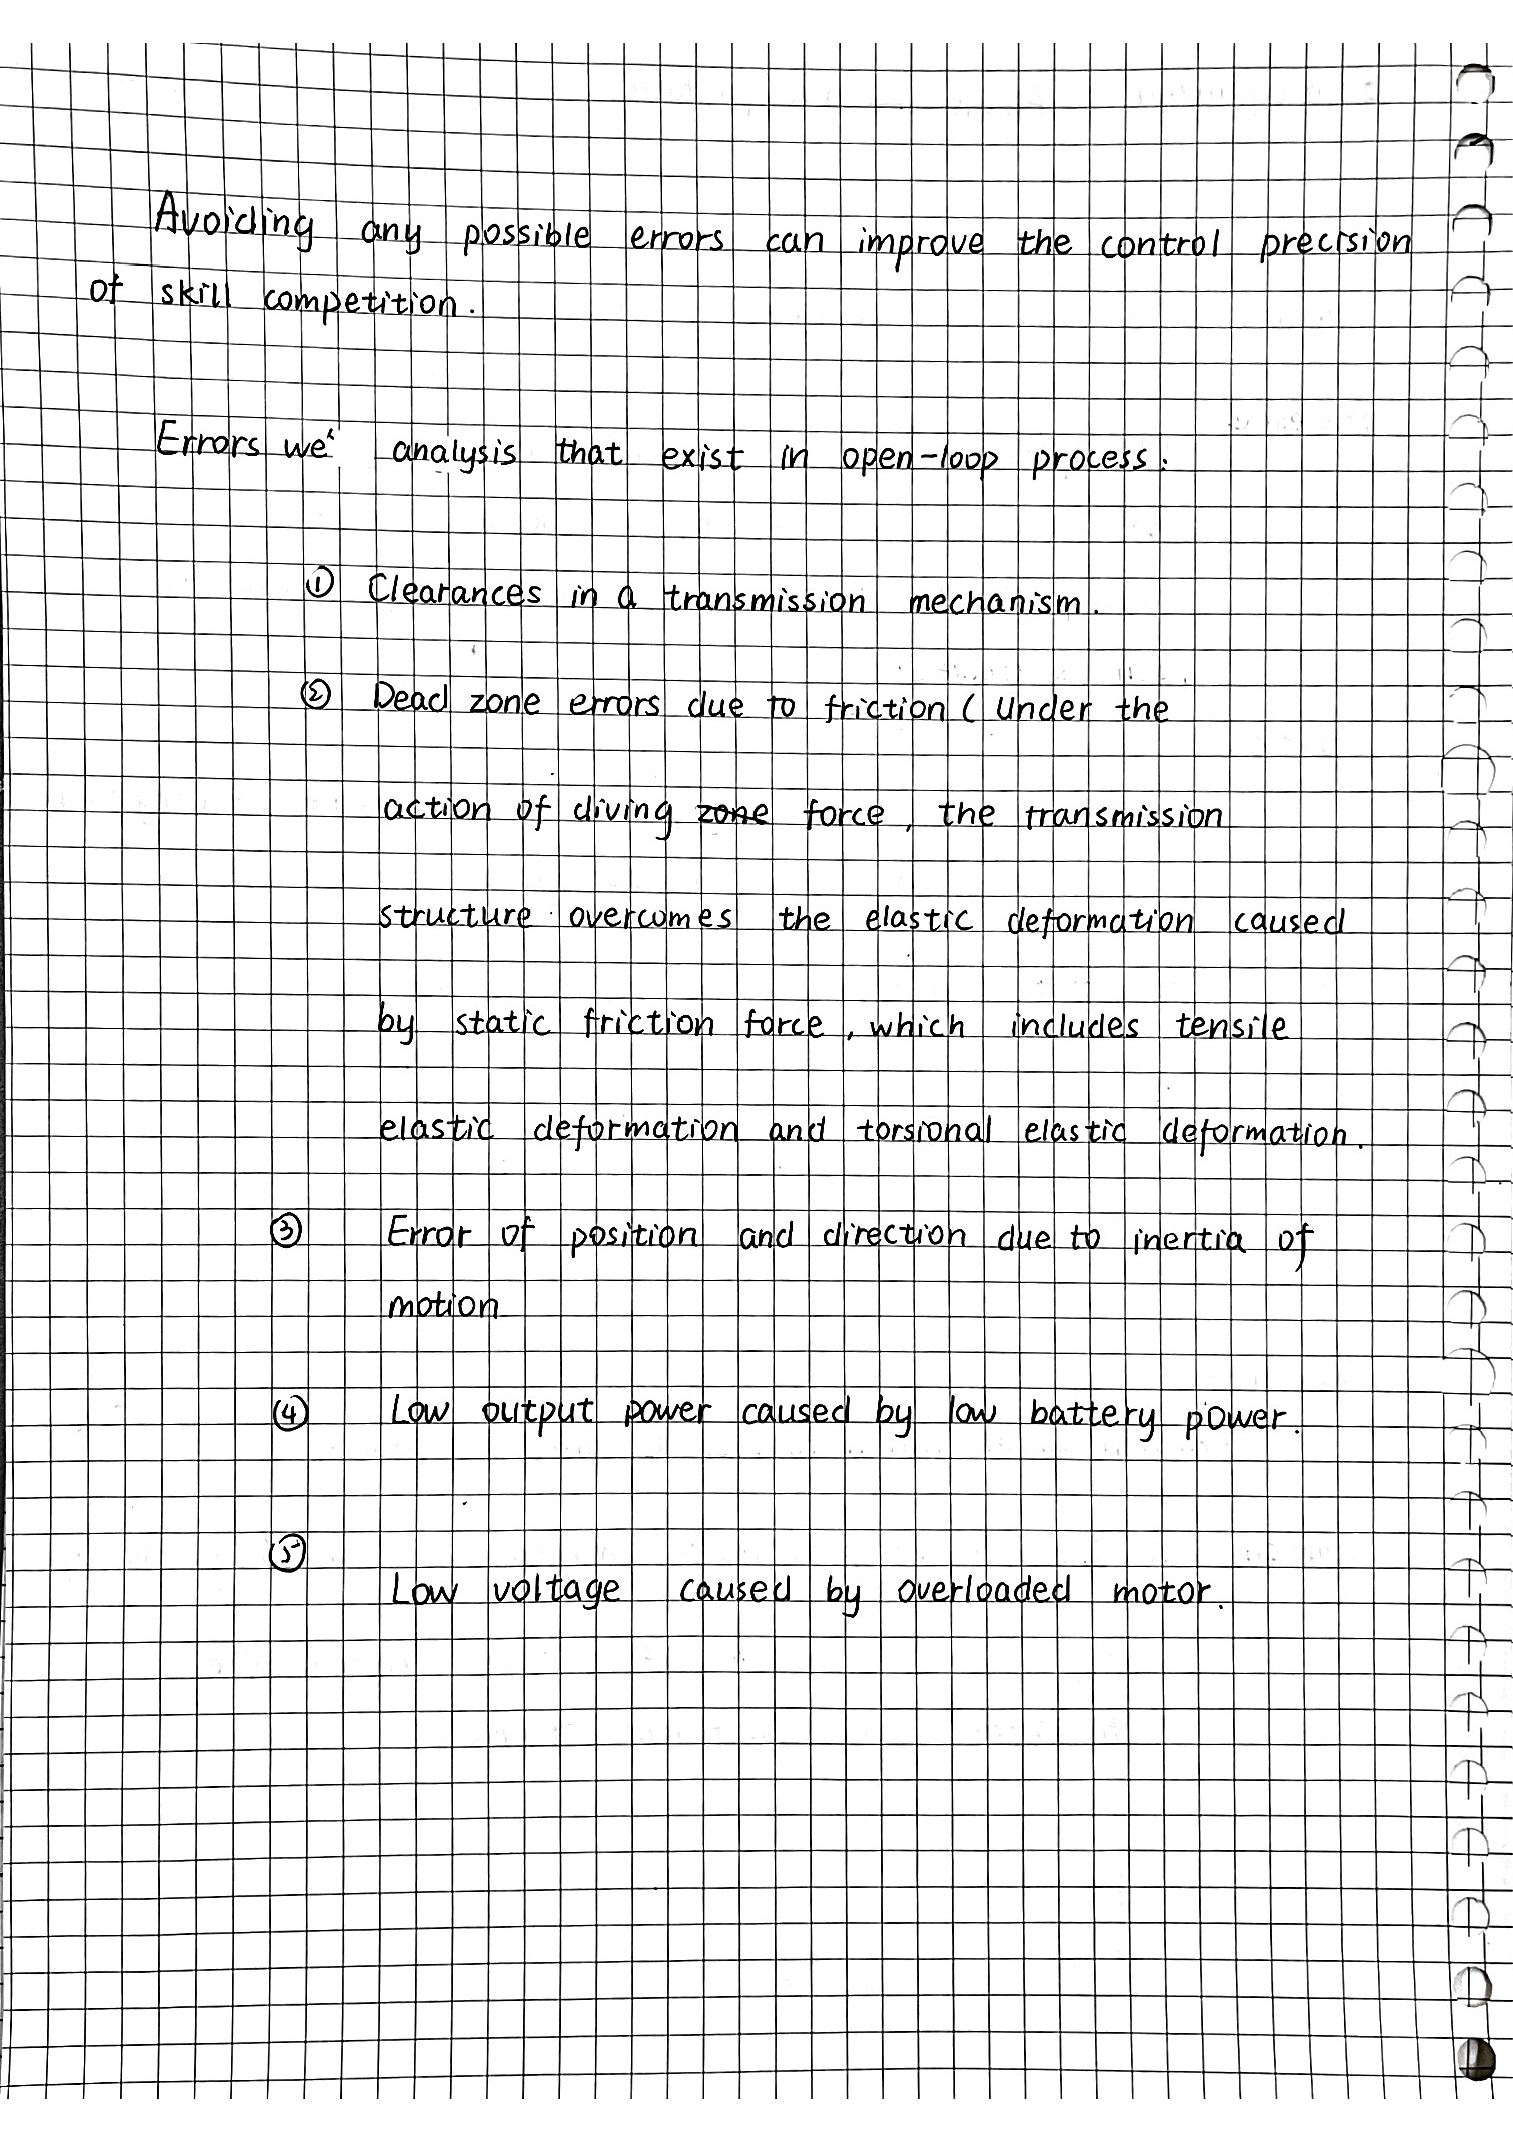 Avoiding any possible errors can improve the control precision
of skill competition.
Errors we' analysis that exist in open-loop process:
① Clearances in a transmission mechanism.
② Dead zone errors due to friction ( Under the
action of diving zone force, the transmission
structure overcomes the elastic deformation caused
by static friction force, which includes tensile
elastic deformation and torsional elastic deformation.
③ Error of position and direction due to inertia of
motion
④ Low output power caused by low battery power.
⑤
Low voltage caused by overloaded motor.